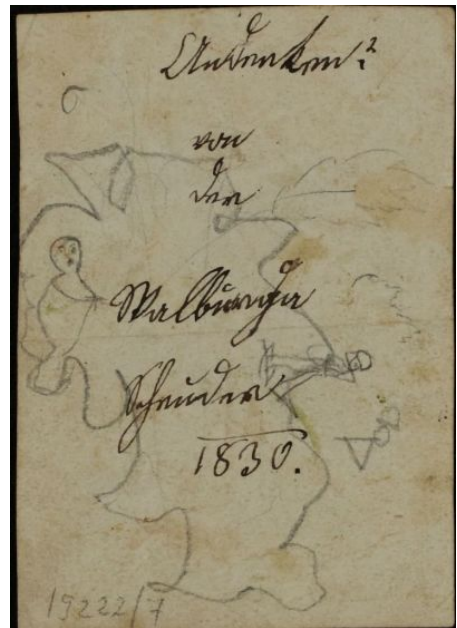 Andenken
von
der
Walburga
Scheuder
1830.
19222/7